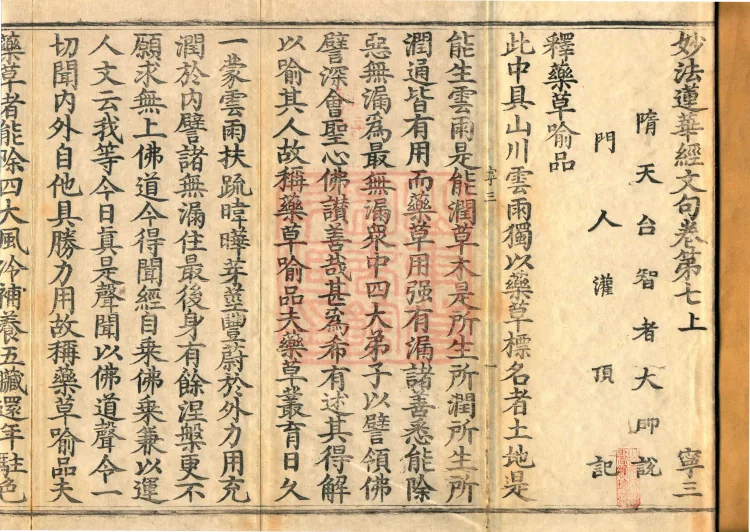 妙法蓮華經文句卷第七上 寧三
隋天台智者大師說
門人灌頂記
釋藥草喻品
此中具山川雲雨獨以藥草標名者土地是
能生雲雨是能潤草木是所生所潤所生所
潤通皆有用而藥草用强有漏諸善悉能除
惡無漏爲最無漏衆中四大弟子以譬領佛
譬深會聖心佛讚善哉甚爲希有述其得解
以喻其人故稱藥草喻品夫藥草叢育日久
一蒙雲雨扶疏暐曄芽莖豐蔚於外力用充
潤於內譬諸無漏住最後身有餘涅槃更不
願求無上佛道今得聞經自乘佛乘兼以運
人文云我等今日眞是聲聞以佛道聲令一
切聞內外自他具勝力用故稱藥草喻品夫
藥草者能除四大風冷補養五臟還年駐色